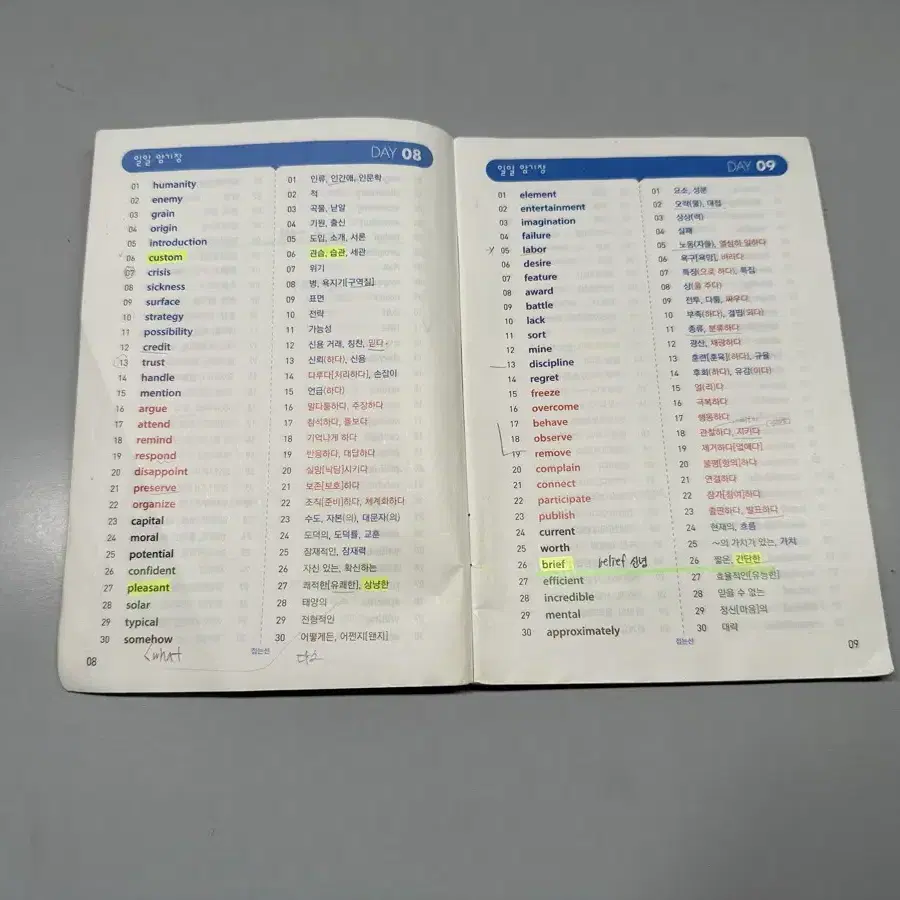 일일 암기장 DAY 08
01 humanity 01 인류, 인간애, 인문학
02 enemy 02 적
03 grain 03 곡물, 낟알
04 origin 04 기원, 출신
05 introduction 05 도입, 소개, 서론
06 custom 06 관습, 습관, 세관
07 crisis 07 위기
08 sickness 08 병, 욕지기[구역질]
09 surface 09 표면
10 strategy 10 전략
11 possibility 11 가능성
12 credit 12 신용 거래, 칭찬, 믿다
13 trust 13 신뢰(하다), 신용
14 handle 14 다루다[처리하다], 손잡이
15 mention 15 언급(하다)
16 argue 16 말다툼하다, 주장하다
17 attend 17 참석하다, 돌보다
18 remind 18 기억나게 하다
19 respond 19 반응하다, 대답하다
20 disappoint 20 실망[낙담]시키다
21 preserve 21 보존[보호]하다
22 organize 22 조직[준비]하다, 체계화하다
23 capital 23 수도, 자본(의), 대문자(의)
24 moral 24 도덕의, 도덕률, 교훈
25 potential 25 잠재적인, 잠재력
26 confident 26 자신 있는, 확신하는
27 pleasant 27 쾌적한[유쾌한], 상냥한
28 solar 28 태양의
29 typical 29 전형적인
30 somehow 30 어떻게든, 어쩐지[왠지]
<what 다소
08 접는선
일일 암기장 DAY 09
01 element 01 요소, 성분
02 entertainment 02 오락(물), 대접
03 imagination 03 상상(력)
04 failure 04 실패
05 labor 05 노동(자들), 열심히 일하다
06 desire 06 욕구[욕망], 바라다
07 feature 07 특징(으로 하다), 특집
08 award 08 상(을 주다)
09 battle 09 전투, 다툼, 싸우다
10 lack 10 부족(하다), 결핍(되다)
11 sort 11 종류, 분류하다
12 mine 12 광산, 채광하다
13 discipline 13 훈련[훈육](하다), 규율
14 regret 14 후회(하다), 유감(이다)
15 freeze 15 얼(리)다
16 overcome 16 극복하다
17 behave 17 행동하다
18 observe 18 관찰하다, 지키다
19 remove 19 제거하다[없애다]
20 complain 20 불평[항의]하다
21 connect 21 연결하다
22 participate 22 참가[참여]하다
23 publish 23 출판하다, 발표하다
24 current 24 현재의, 흐름
25 worth 25 ~의 가치가 있는, 가치
26 brief belief 신념 26 짧은, 간단한
27 efficient 27 효율적인[유능한]
28 incredible 28 믿을 수 없는
29 mental 29 정신[마음]의
30 approximately 30 대략
접는선 09